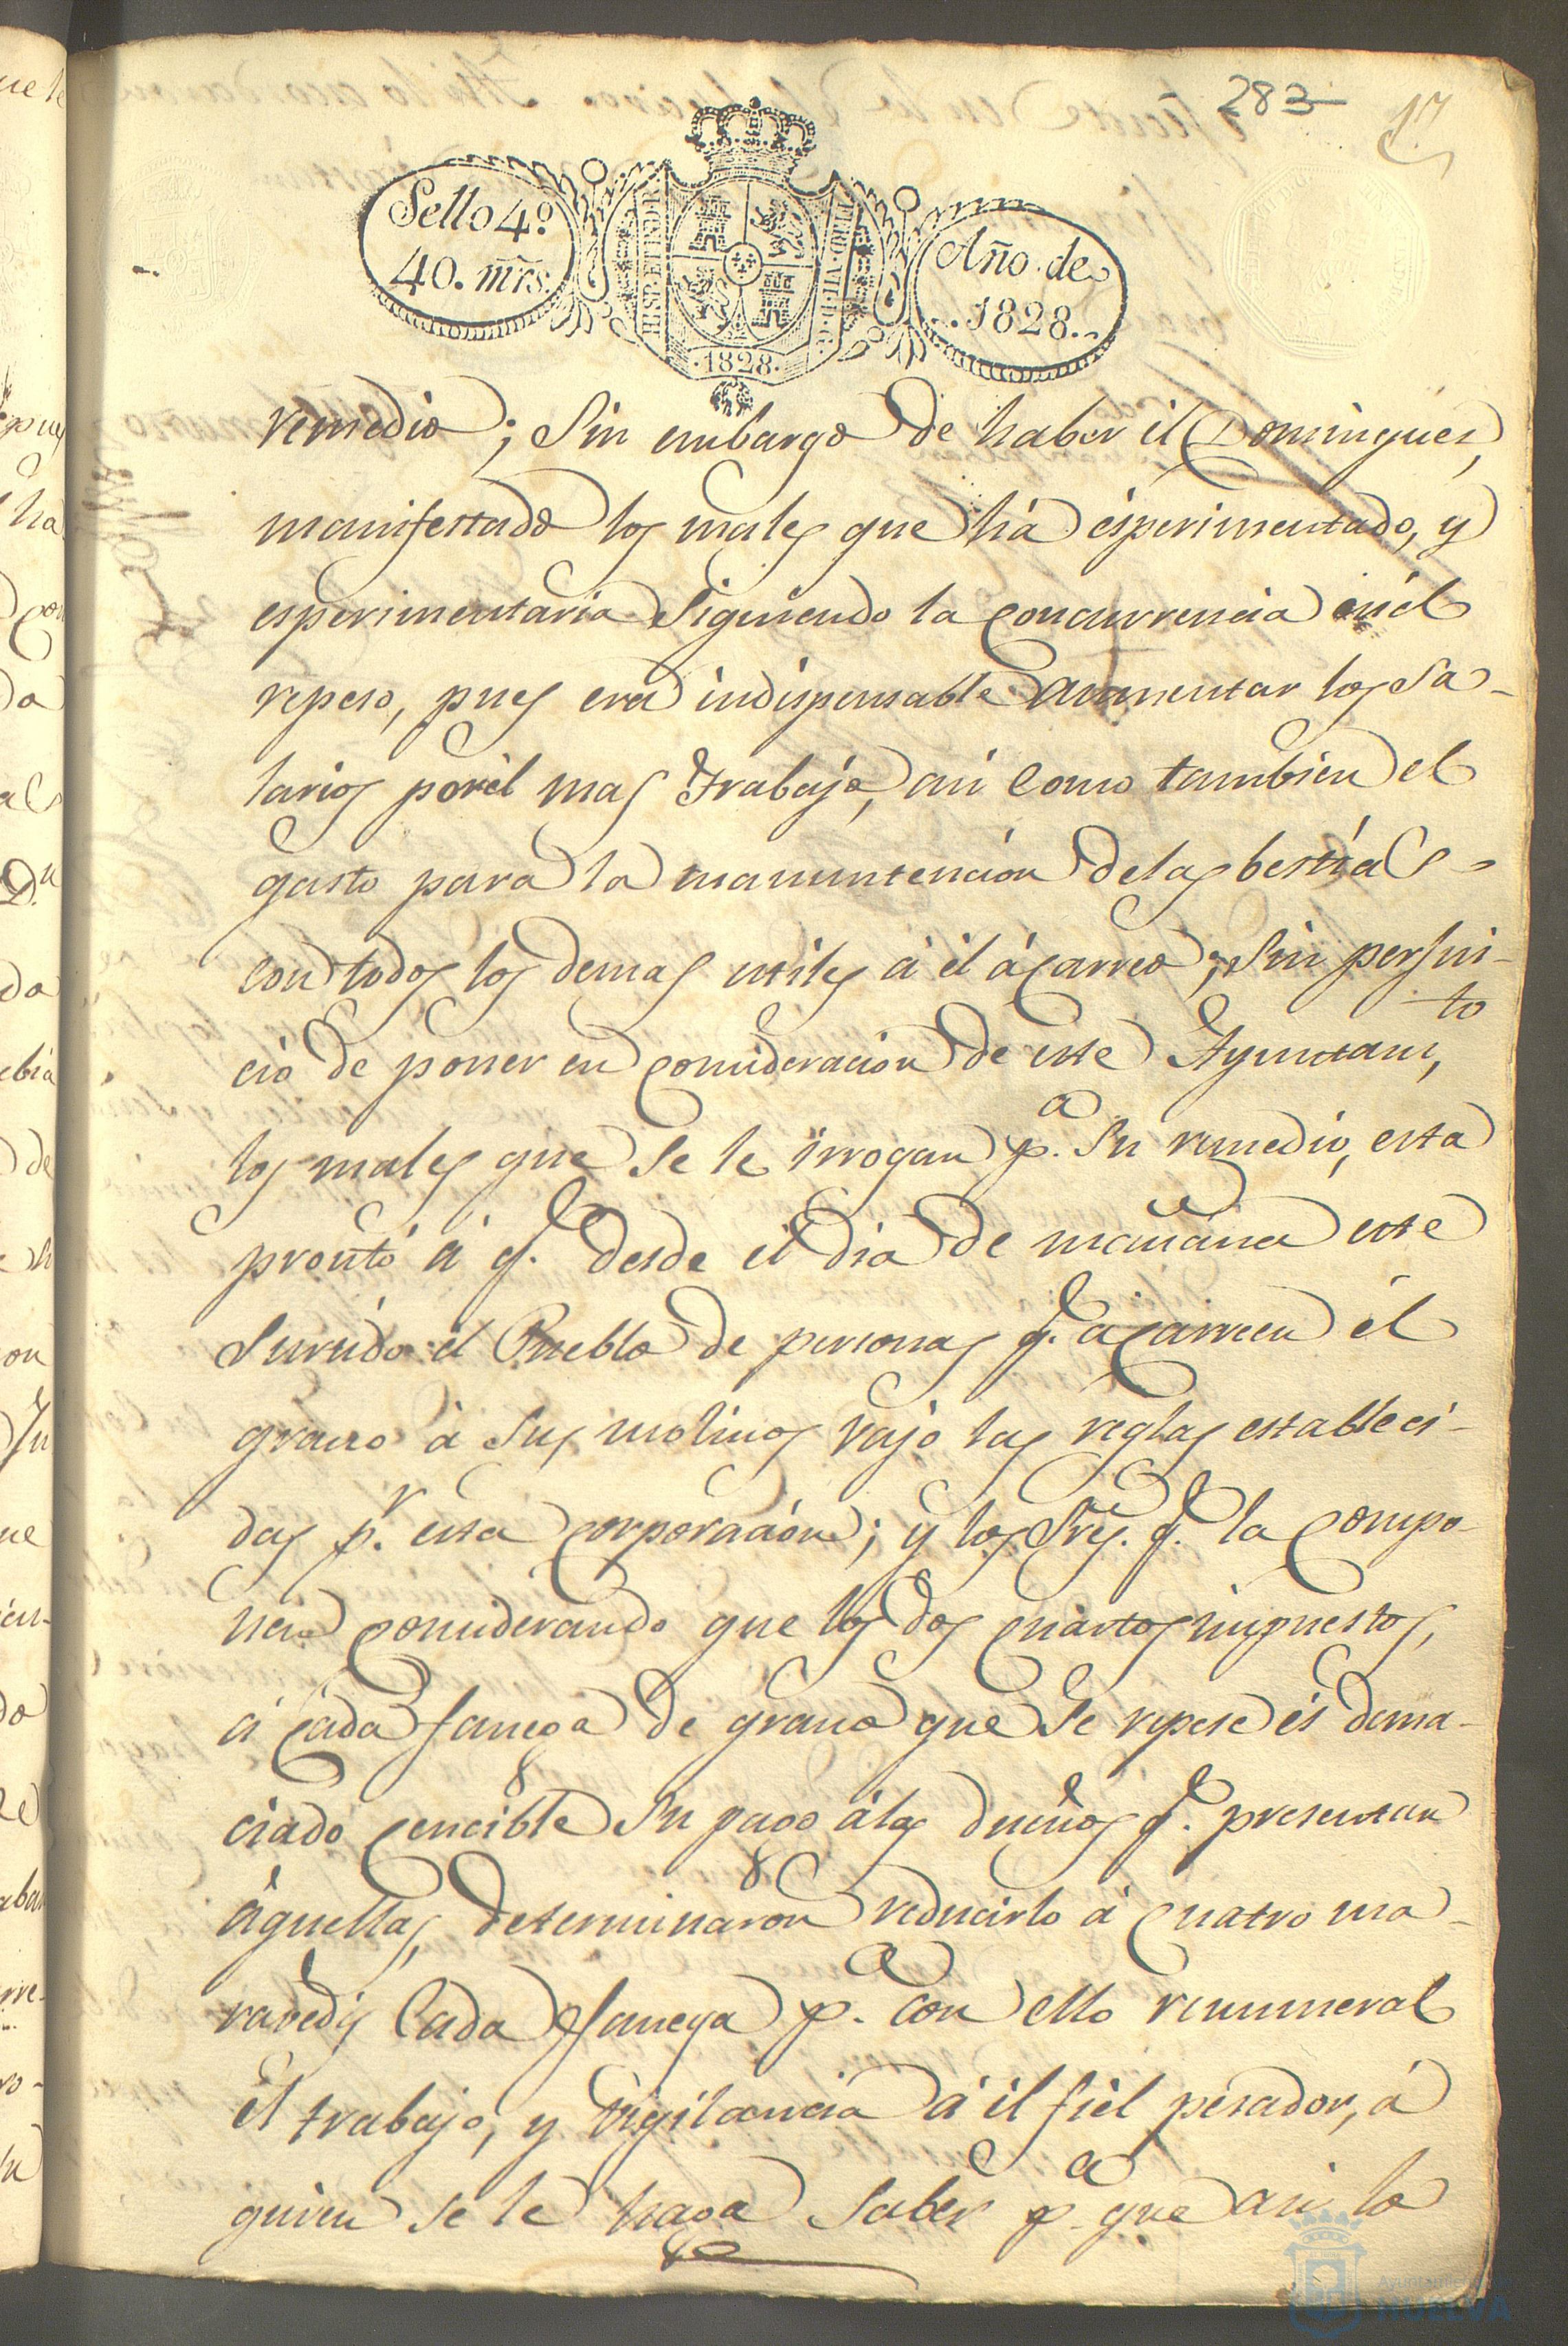 283
17
Sello 4º
40. mrs.
HISP. ET IND. R.
1828.
Año de
1828.
remedio; Sin embargo de haber él Domingues,
manifestado los males que há ésperimentado, y
esperimentaria siguiendo la concurrencia en él
repeso, pues era indispensable aumentar los sa-
larios por él mas trabajo, asi como tambien el
gasto para la manuntencion de las bestias
con todos los demas utiles á él ácarreo; sin perjui-
cio de poner en consideracion de este Ayuntamto,
los males que se le irrogan pa. su remedio, esta
pronto á q. desde él dia de mañana este
surtido él Pueblo de personas q. acarreen él
grano á sus molinos vajo las reglas estableci-
das pr. esta corporacion; y los Sres. q. la compo-
nen considerando que los dos cuartos impuestos,
á cada fanega de grano que se repese és dema-
ciado cencible su pago á los dueños q. presentan
áquellas, determinaron reducirlo á cuatro ma-
ravedis cada fanega pa. con ello remuneral
él trabajo, y vigilancia á él fiel pesador, á
quien se le haga saber pa. que asi lo
Ayuntamiento de
HUELVA